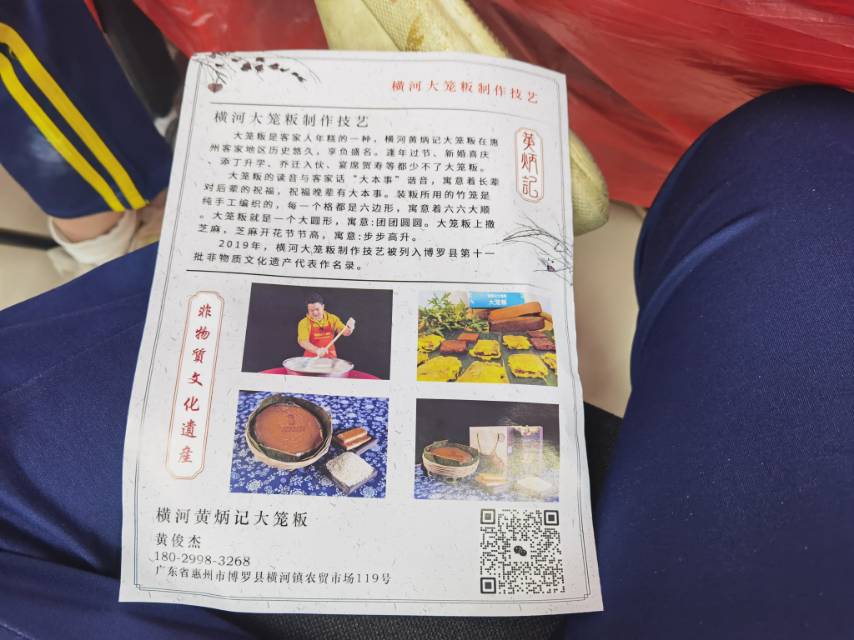 横河大笼粄制作技艺
横河大笼粄制作技艺
大笼粄是客家人年糕的一种，横河黄炳记大笼粄在惠
州客家地区历史悠久，享负盛名。逢年过节、新婚喜庆
、添丁升学、乔迁入伙、宴席贺寿等都少不了大笼粄。
大笼粄的读音与客家话“大本事”谐音，寓意着长辈
对后辈的祝福，祝福晚辈有大本事。装粄所用的竹笼是
纯手工编织的，每一个格都是六边形，寓意着六六大顺
。大笼粄就是一个大圆形，寓意:团团圆圆。大笼粄上撒
芝麻，芝麻开花节节高，寓意:步步高升。
2019年，横河大笼粄制作技艺被列入博罗县第十一
批非物质文化遗产代表作名录。
黄炳记
非物質文化遺產
大笼粄
横河黄炳记大笼粄
黄俊杰
180-2998-3268
广东省惠州市博罗县横河镇农贸市场119号